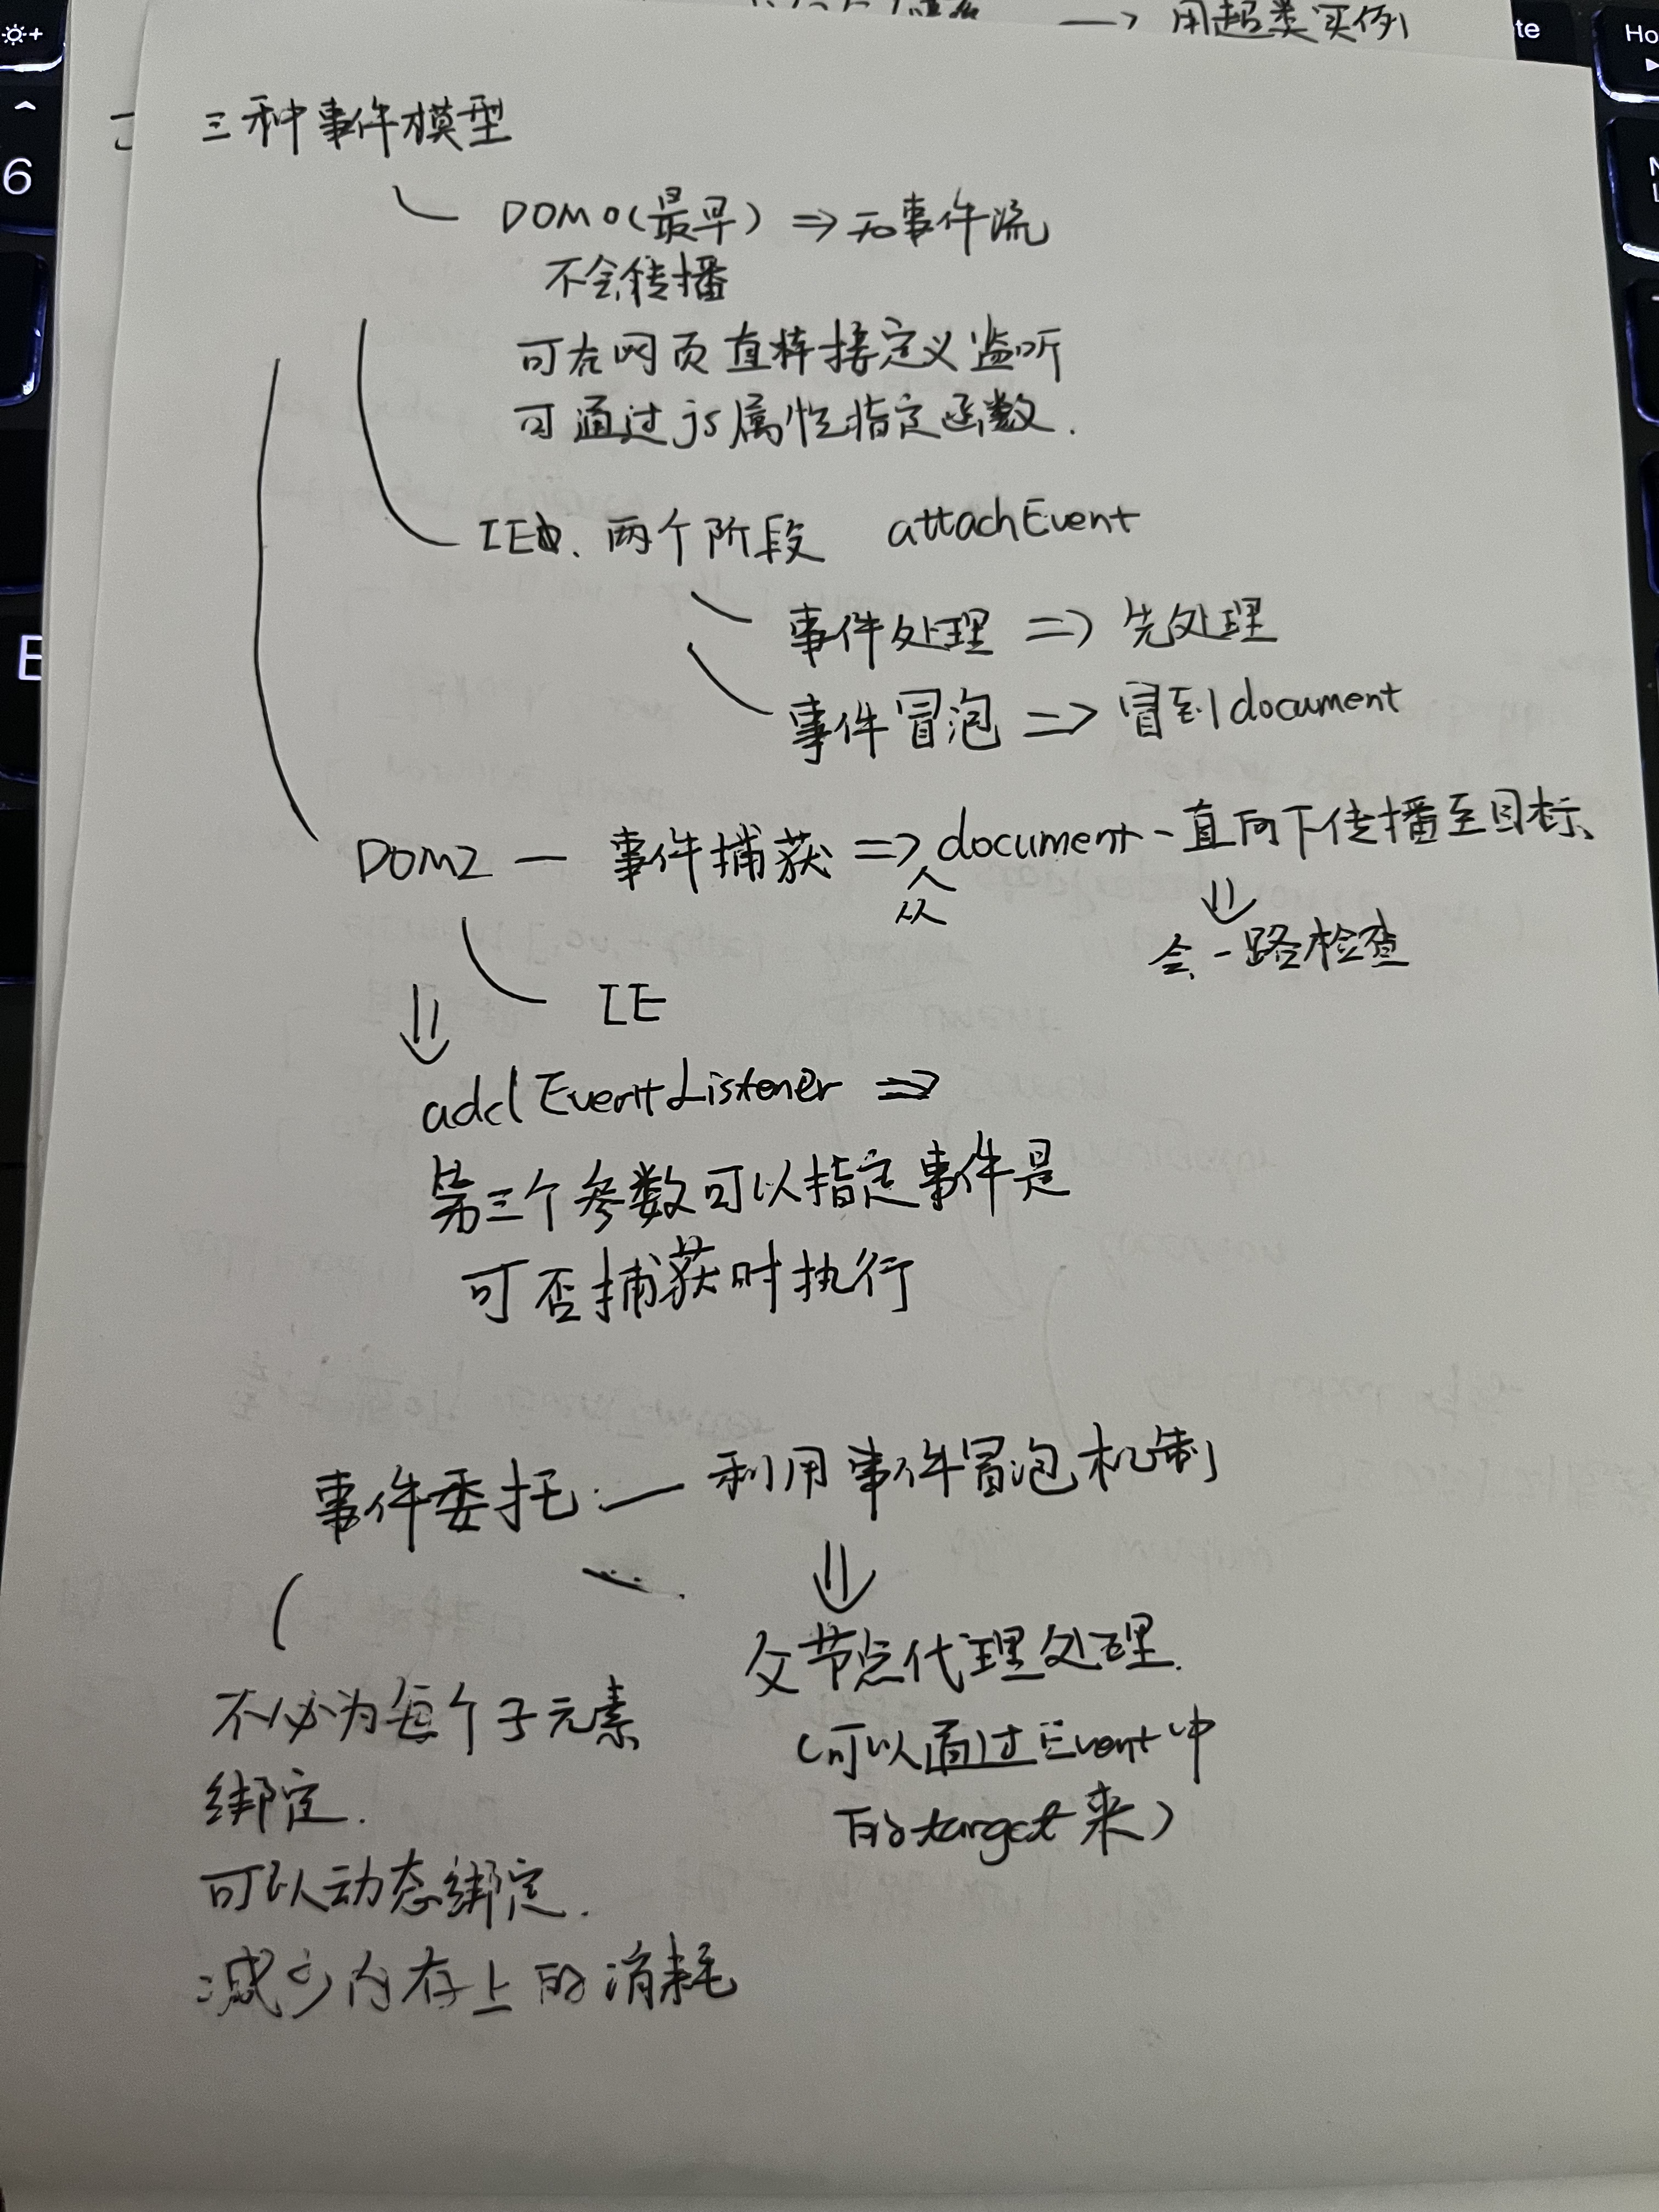 用超类实例
三种事件模型
DOM0(最早) => 无事件流
不会传播
可在网页直接定义监听
可通过js属性指定函数.
IE 、两个阶段 attachEvent
事件处理 => 先处理
事件冒泡 => 冒到document
DOM2 — 事件捕获 => document一直向下传播至目标、
从
会一路检查
IE
addEventListener =>
第三个参数可以指定事件是
可否捕获时执行
事件委托 — 利用事件冒泡机制
父节点代理处理.
(可以通过Event中
的target来)
不必为每个子元素
绑定.
可以动态绑定.
减少内存上的消耗
6
E
te
Ho